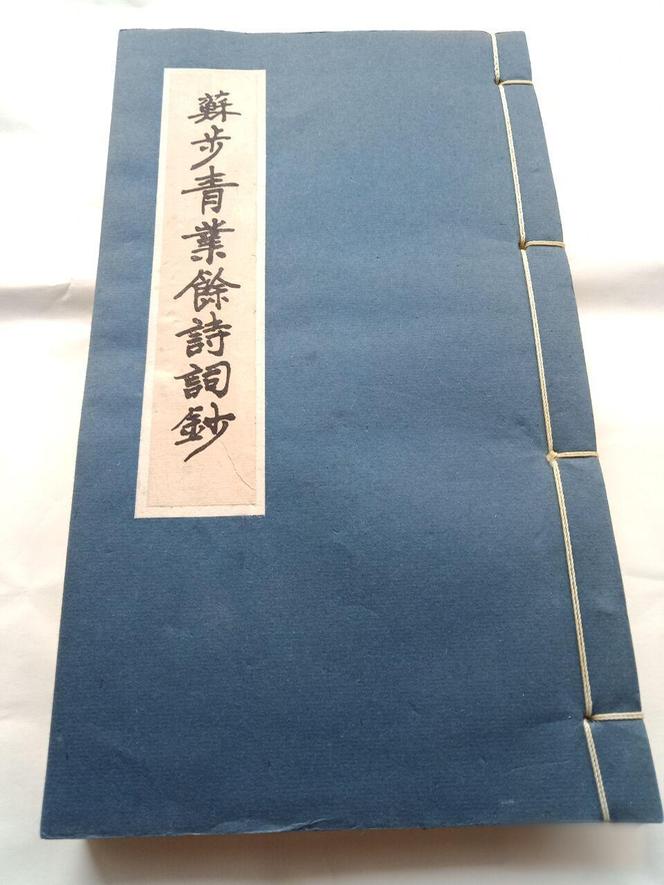 蘇步青業餘詩詞鈔